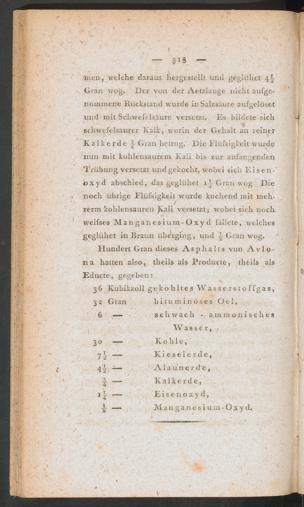 — 318 —
men, welche daraus hergestellt und geglühet 4½
Gran wog. Der von der Aetzlauge nicht aufge-
nommene Rückstand wurde in Salzsäure aufgelöset
und mit Schwefelsäure versetzt. Es bildete sich
schwefelsaurer Kalk, worin der Gehalt an reiner
Kalkerde Gran betrug. Die Flüssigkeit wurde
nun mit kohlensaurem Kali bis zur anfangenden
Trübung versetzt und gekocht, wobei sich Eisen-
oxyd abschied, das geglühet 1¼ Gran wog. Die
noch übrige Flüssigkeit wurde kochend mit meh-
rerm kohlensauren Kali versetzt; wobei sich noch
weisses Manganesium-Oxyd fällete, welches
geglühet in Braun überging, und Gran wog.
Hundert Gran dieses Asphalts von Avlo-
na hatten also, theils als Producte, theils als
Educte, gegeben:
36 Kubikzoll gekohltes Wasserstoffgas,
32 Gran bituminöses Oel,
6 — schwach-ammonisches
Wasser,
30 — Kohle,
7½ — Kieselerde,
4½ — Alaunerde,
— Kalkerde,
1¼ — Eisenoxyd,
— Manganesium-Oxyd.